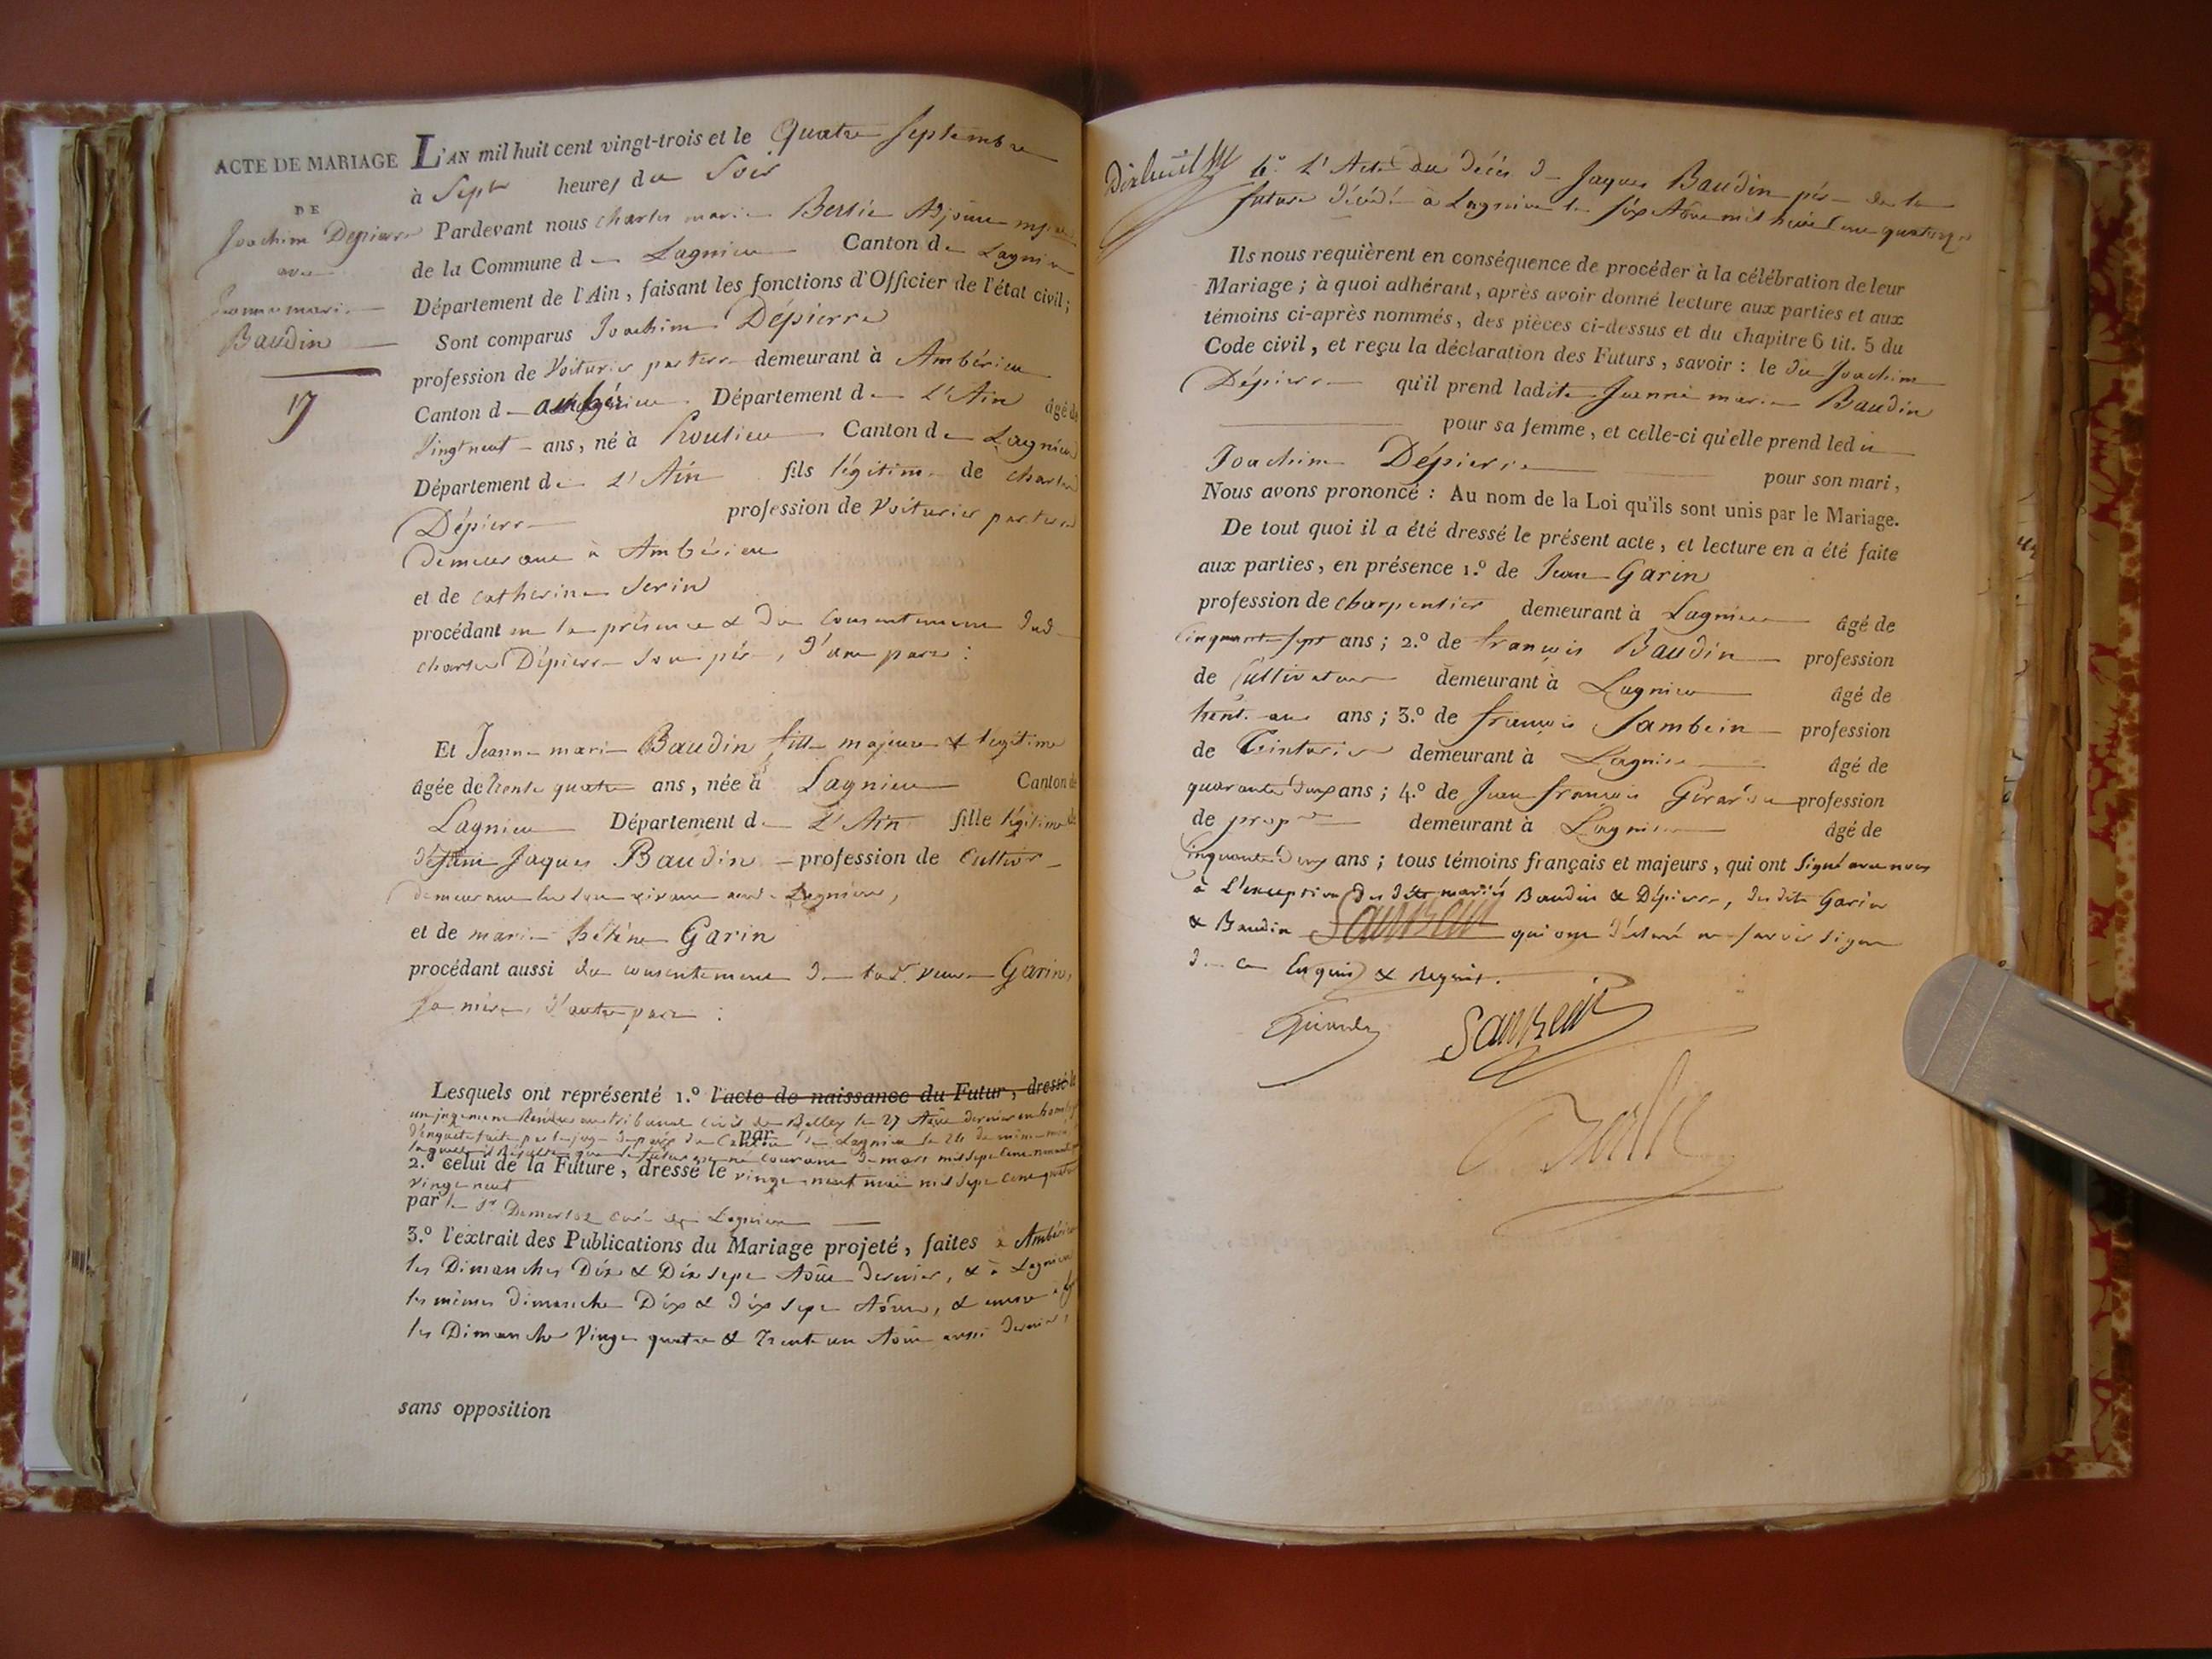 ACTE DE MARIAGE
DE
Joachim Depierre
avec
Jeanne marie
Baudin
17
L'AN mil huit cent vingt-trois et le Quatre Septembre
à Sept heures du Soir
Pardevant nous charles marie Berlie Adjoint
de la Commune de Lagnieu Canton de Lagnieu
Département de l'Ain, faisant les fonctions d'Officier de l'état civil;
Sont comparus Joachim Dépierre
profession de Voiturier par terre demeurant à Ambérieu
Canton d Département de L'Ain âgé de
Vingt neuf ans, né à Proulieu Canton de Lagnieu
Département de L'Ain fils légitime de charles
Dépierre profession de Voiturier par terre
demeurant à Ambérieu
et de Catherine Serin
procédant en la présence & du consentement dud
charles Dépierre son père, d'une part :
Et Jeanne marie Baudin fille majeure & légitime
âgée de trente quatre ans, née à Lagnieu Canton de
Lagnieu Département de L'Ain fille légitime de
défunt Jaques Baudin profession de Cultivr
demeurant Lagnieu,
et de marie hélène Garin
procédant aussi du consentement de lad. veuve Garin,
sa mère, d'autre part :
Lesquels ont représenté 1.º l'acte de naissance du Futur, dressé le
un jugement Rendu au tribunal Civil de Belley le 27 Août dernier en
d'enquête faite par le juge de paix du Canton de Lagnieu le 24 du même mois
par
laquelle il Résulte que le futur est né courant de mars mil sept cent nonante
2.º celui de la Future, dressé le vingt neuf mai mil sept cent quatre
vingt neuf
par le Sr Demerloz curé de Lagnieu
3.º l'extrait des Publications du Mariage projeté, faites à Ambérieu
les Dimanches Dix & Dix sept Août dernier, & à Lagnieu
les mêmes dimanche Dix & dix sept Août, & encore à
les Dimanche Vingt quatre & Trente un Août aussi dernier,
sans opposition
Dixhuit
4.º L'Acte du Décès de Jaques Baudin père de la
future décédé à Lagnieu le six Août mil huit cent quatorze
Ils nous requièrent en conséquence de procéder à la célébration de leur
Mariage; à quoi adhérant, après avoir donné lecture aux parties et aux
témoins ci-après nommés, des pièces ci-dessus et du chapitre 6 tit. 5 du
Code civil, et reçu la déclaration des Futurs, savoir : le dit Joachim
Dépierre qu'il prend ladite Jeanne marie Baudin
pour sa femme, et celle-ci qu'elle prend ledit
Joachim Dépierre pour son mari,
Nous avons prononcé : Au nom de la Loi qu'ils sont unis par le Mariage.
De tout quoi il a été dressé le présent acte, et lecture en a été faite
aux parties, en présence 1.º de Jean Garin
profession de charpentier demeurant à Lagnieu âgé de
Cinquante sept ans; 2.º de françois Baudin profession
de Cultivateur demeurant à Lagnieu âgé de
trent. ans; 3.º de françois Sambein profession
de Teinturier demeurant à Lagnieu âgé de
quarante deux ans; 4.º de Jean françois Girardin profession
de propre demeurant à Lagnieu âgé de
Cinquante deux ans; tous témoins français et majeurs, qui ont Signé avec nous
à L'exception des dits mariés Baudin & Dépierre, des dits Garin
& Baudin qui ont déclaré ne savoir signer
de ce Enquis & Requis.
Sambein
Berlie